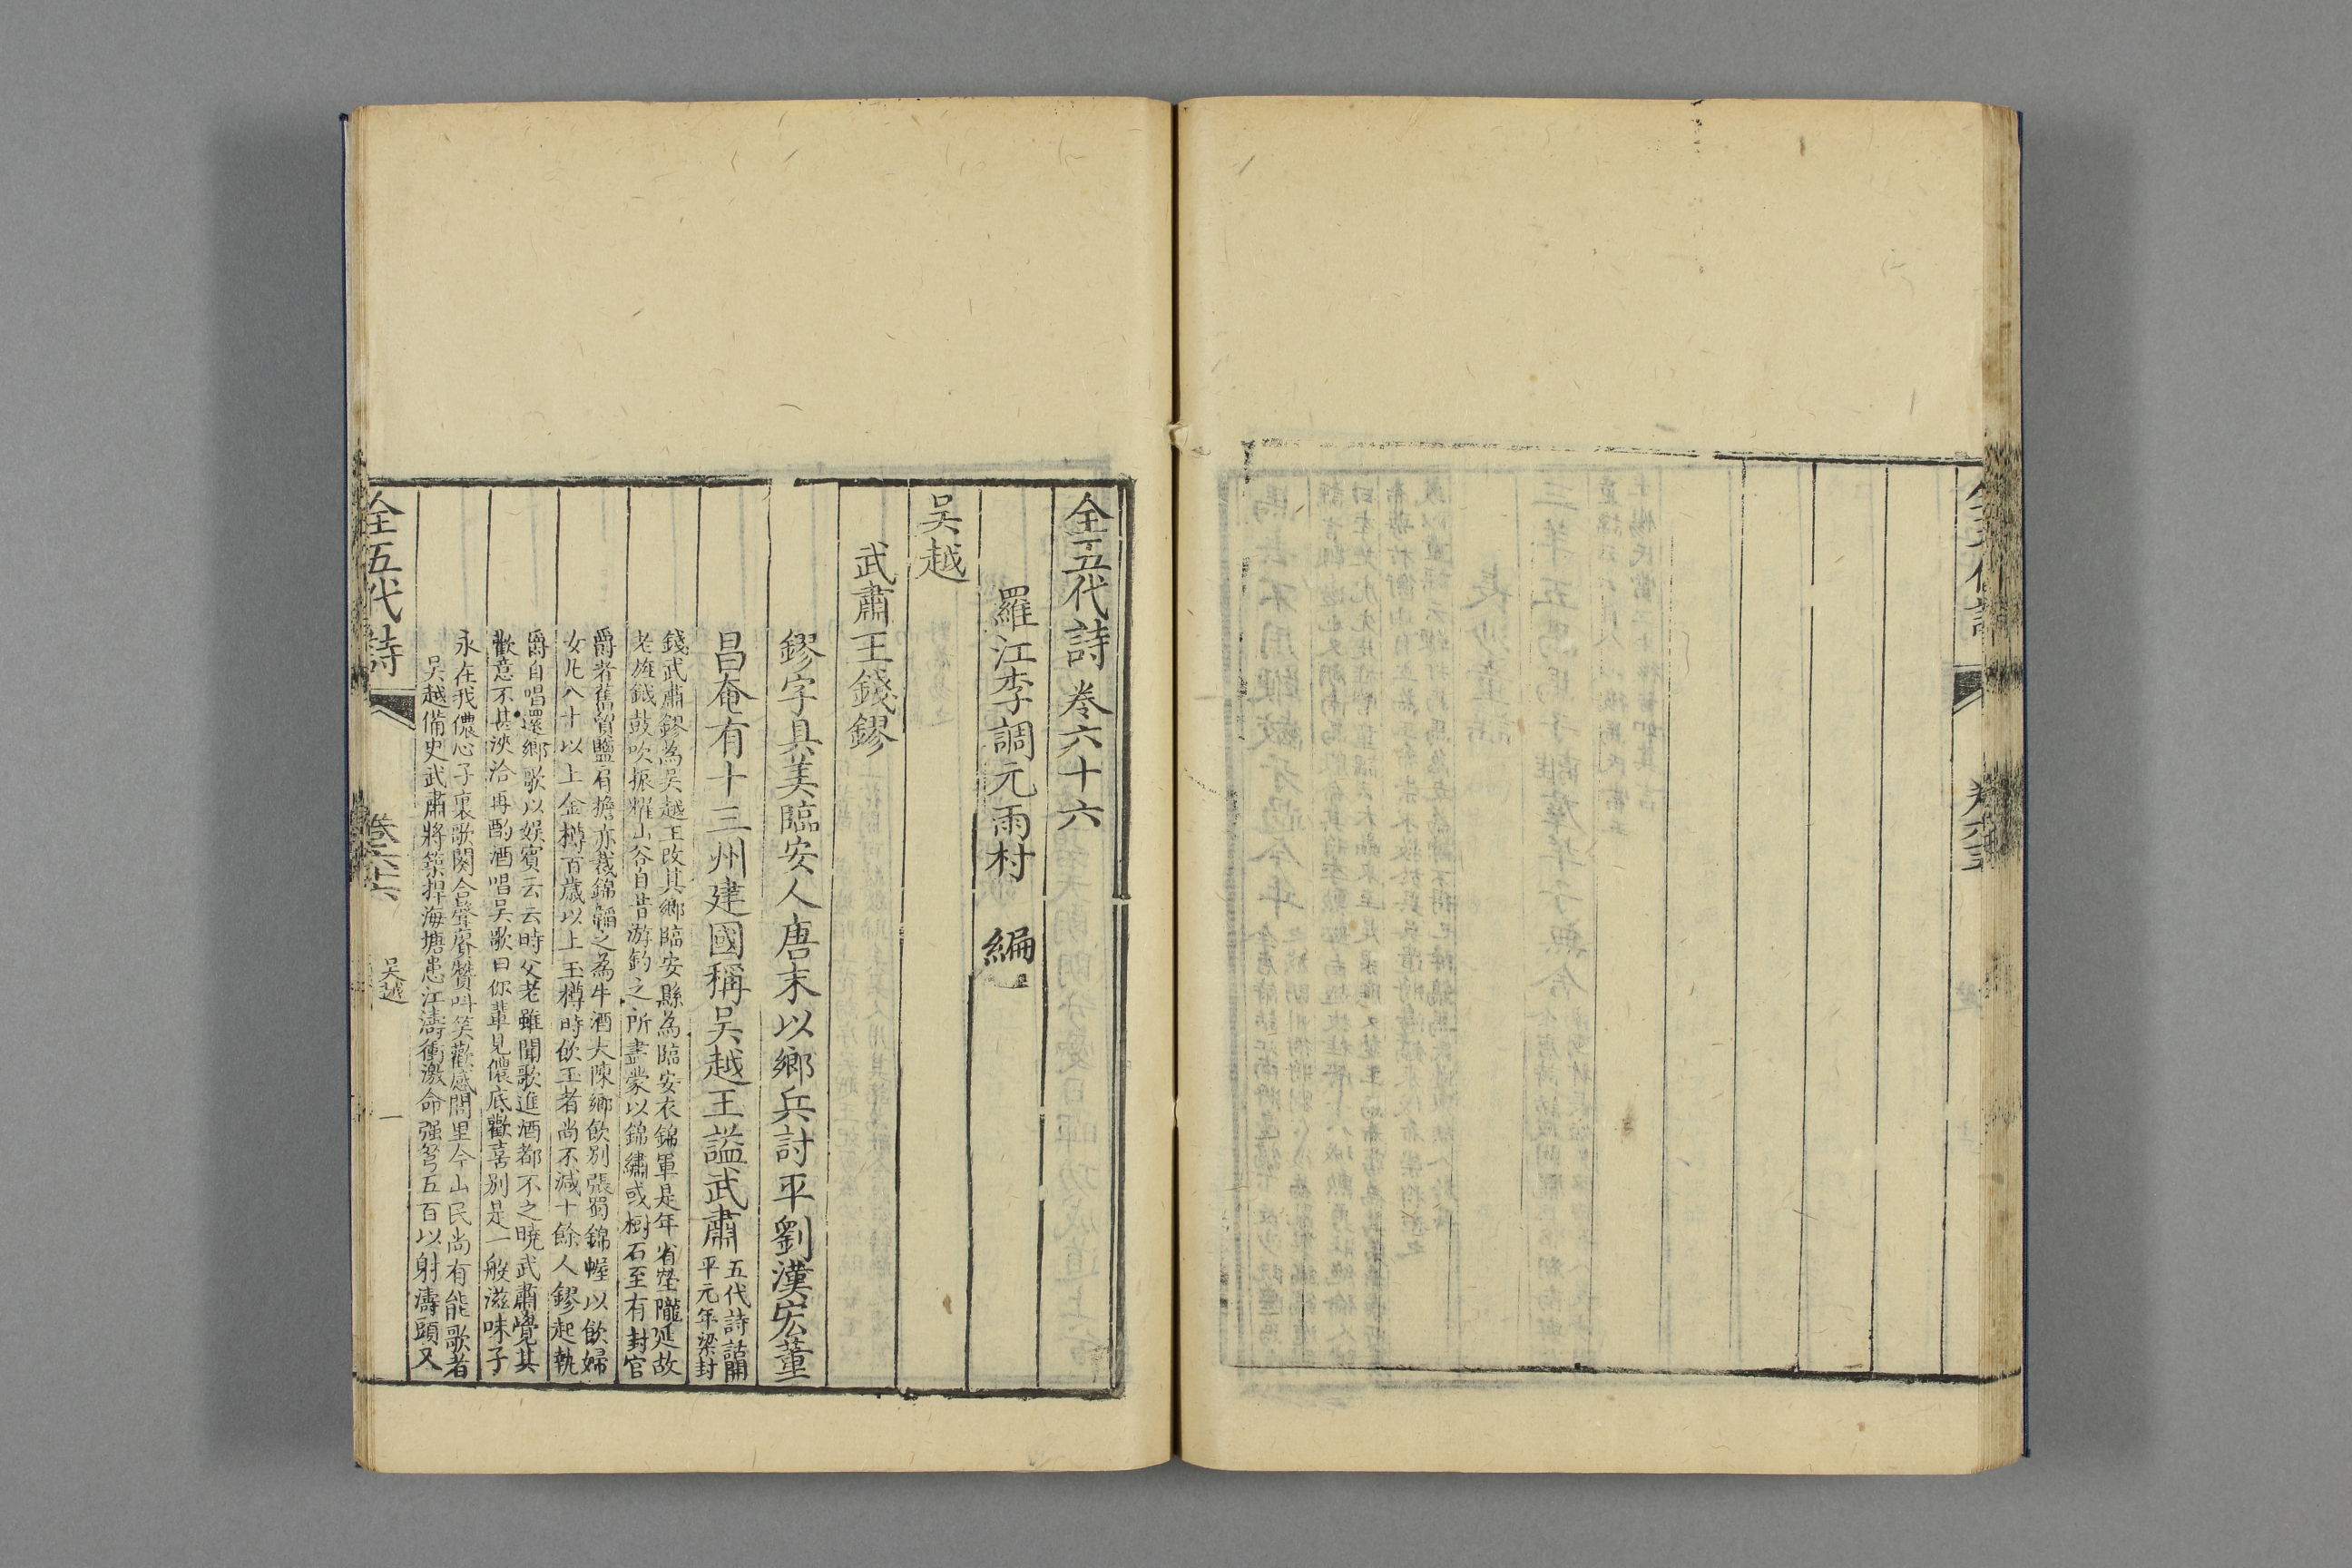 全五代詩 卷六十六
羅江李調元雨村 編
吳越
武肅王錢鏐
鏐字具美臨安人唐末以鄉兵討平劉漢宏董
昌奄有十三州建國稱吳越王諡武肅
五代詩話開
平元年梁封
錢武肅鏐為吳越王改其鄉臨安縣為臨安衣錦軍是年省塋隴延故
老旌鉞鼓吹振耀山谷自昔游釣之所盡蒙以錦繡或樹石至有封官
爵者舊貿鹽肩擔亦裁錦韜之為牛酒大陳鄉飲別張蜀錦幄以飲婦
女凡八十以上金樽百歲以上玉樽時飲玉者尚不減十餘人鏐起執
爵自唱還鄉歌以娛賓云云時父老雖聞歌進酒都不之曉武肅覺其
歡意不甚浹洽再酌酒唱吳歌曰你輩見儂底歡喜別是一般滋味子
永在我儂心子裏歌闋合聲賡贊呌笑歡感閭里今山民尚有能歌者
吳越備史武肅將築捍海塘患江濤衝激命强弩五百以射濤頭又
全五代詩
卷六十六
吳越
一